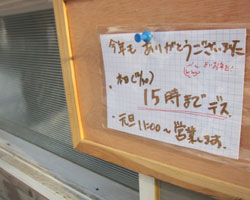 今年も ありがとうございました
15時までデス
・元旦 11:00〜営業します.